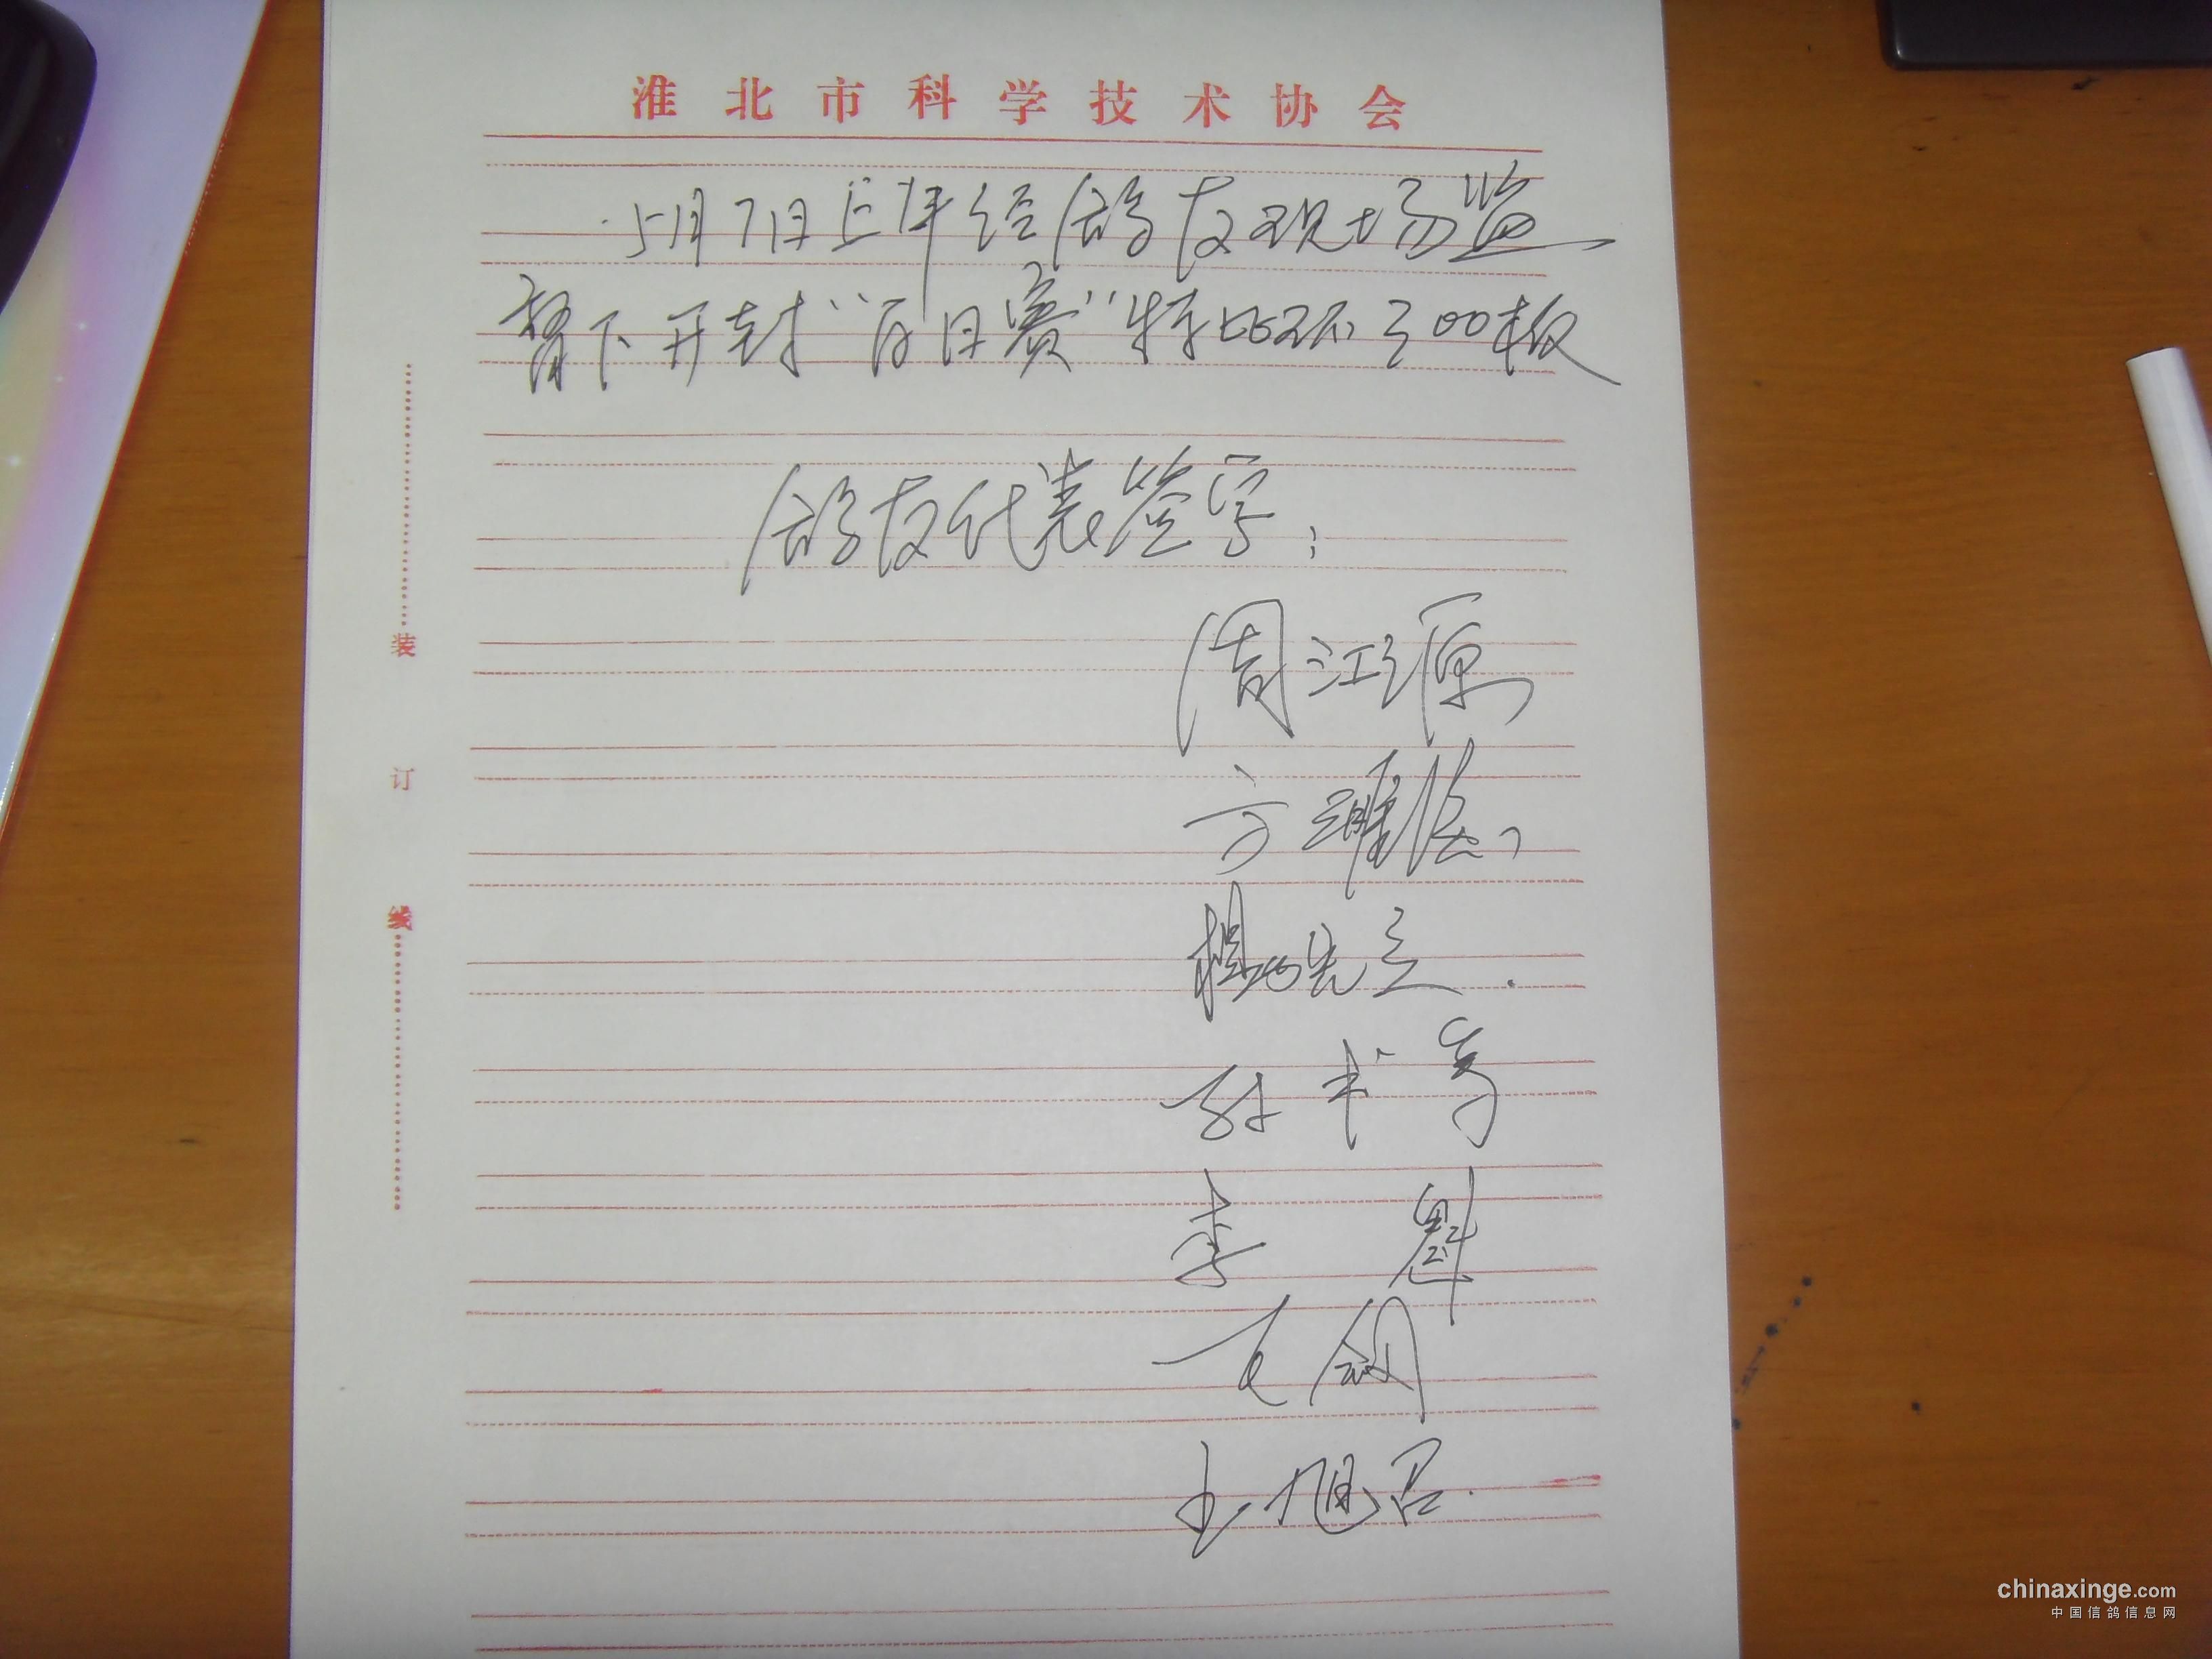 淮北市科学技术协会
5月7日上午经鸽友现场监
督下开封“百日赛”特比环300枚
鸽友代表签字：
周江源
方
杨先立
孙书
李魁
王旭召
装
订
线
chinaxinge.com
中国信鸽信息网